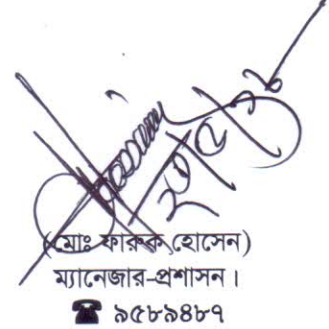 (মোঃ ফারুক হোসেন)
ম্যানেজার-প্রশাসন।
☎ ৯৫৮৯৪৮৭